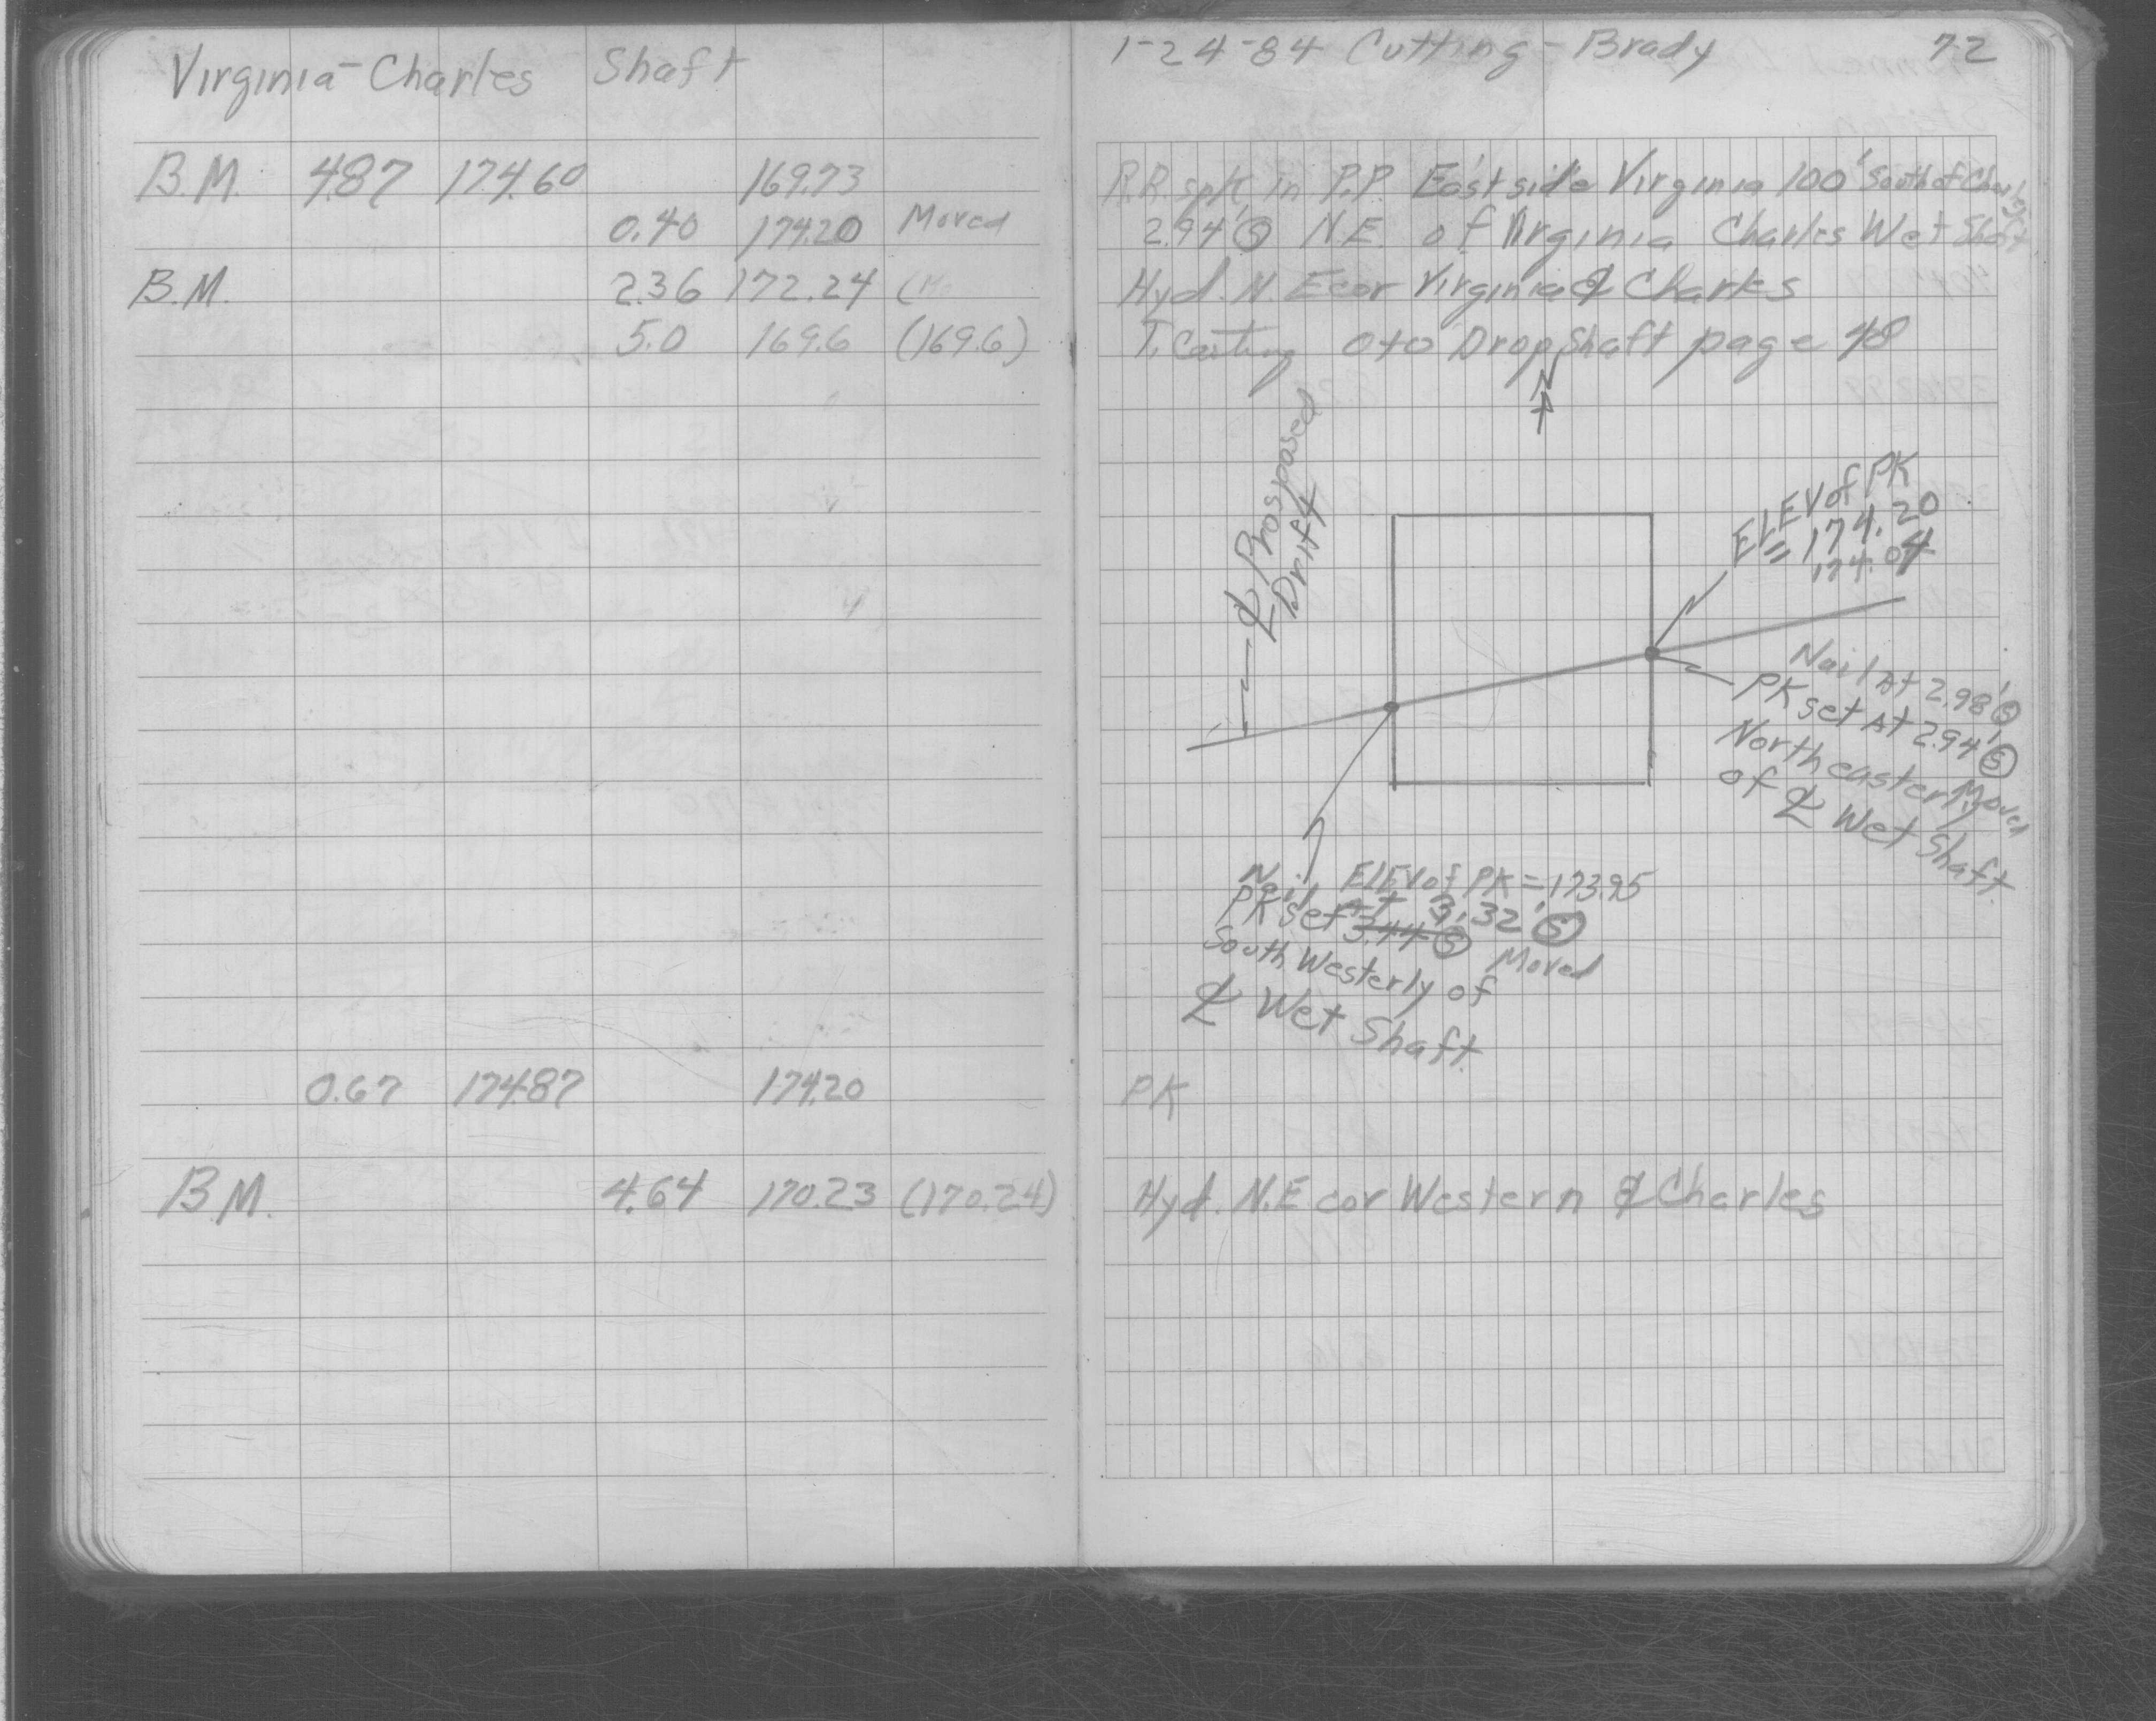 Virginia-Charles Shaft
B.M. 4.87 174.60 169.73
0.40 174.20 Moved
B.M. 2.36 172.24 (
5.0 169.6 (169.6)
0.67 174.87 174.20
B.M. 4.64 170.23 (170.24)
1-24-84 Cutting-Brady 72
R.R. spk in P.P. East side Virginia 100' South of Charles
2.94' Ⓢ N.E. of Virginia Charles Wet Shaft
Hyd. N.E cor Virginia & Charles
T. Casting 0+0 Drop Shaft page 48
N
℄ Prosposed
Drift
ELEV of PK
= 174.20
174.04
Nail At 2.98' Ⓢ
PK set At 2.94' Ⓢ
Northeasterly Moved
of ℄ Wet Shaft.
Nail ELEV of PK = 173.95
PK set At 3.32' Ⓢ
3.44 Ⓢ Moved
South Westerly of
℄ Wet Shaft.
PK
Hyd. N.E cor Western & Charles